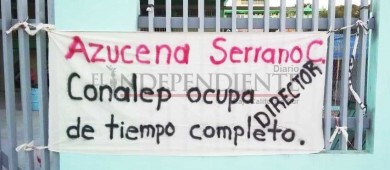 Azucena Serrano C.
Diario
EL INDEPENDIENTE
Conalep ocupa DIRECTOR
de tiempo completo.